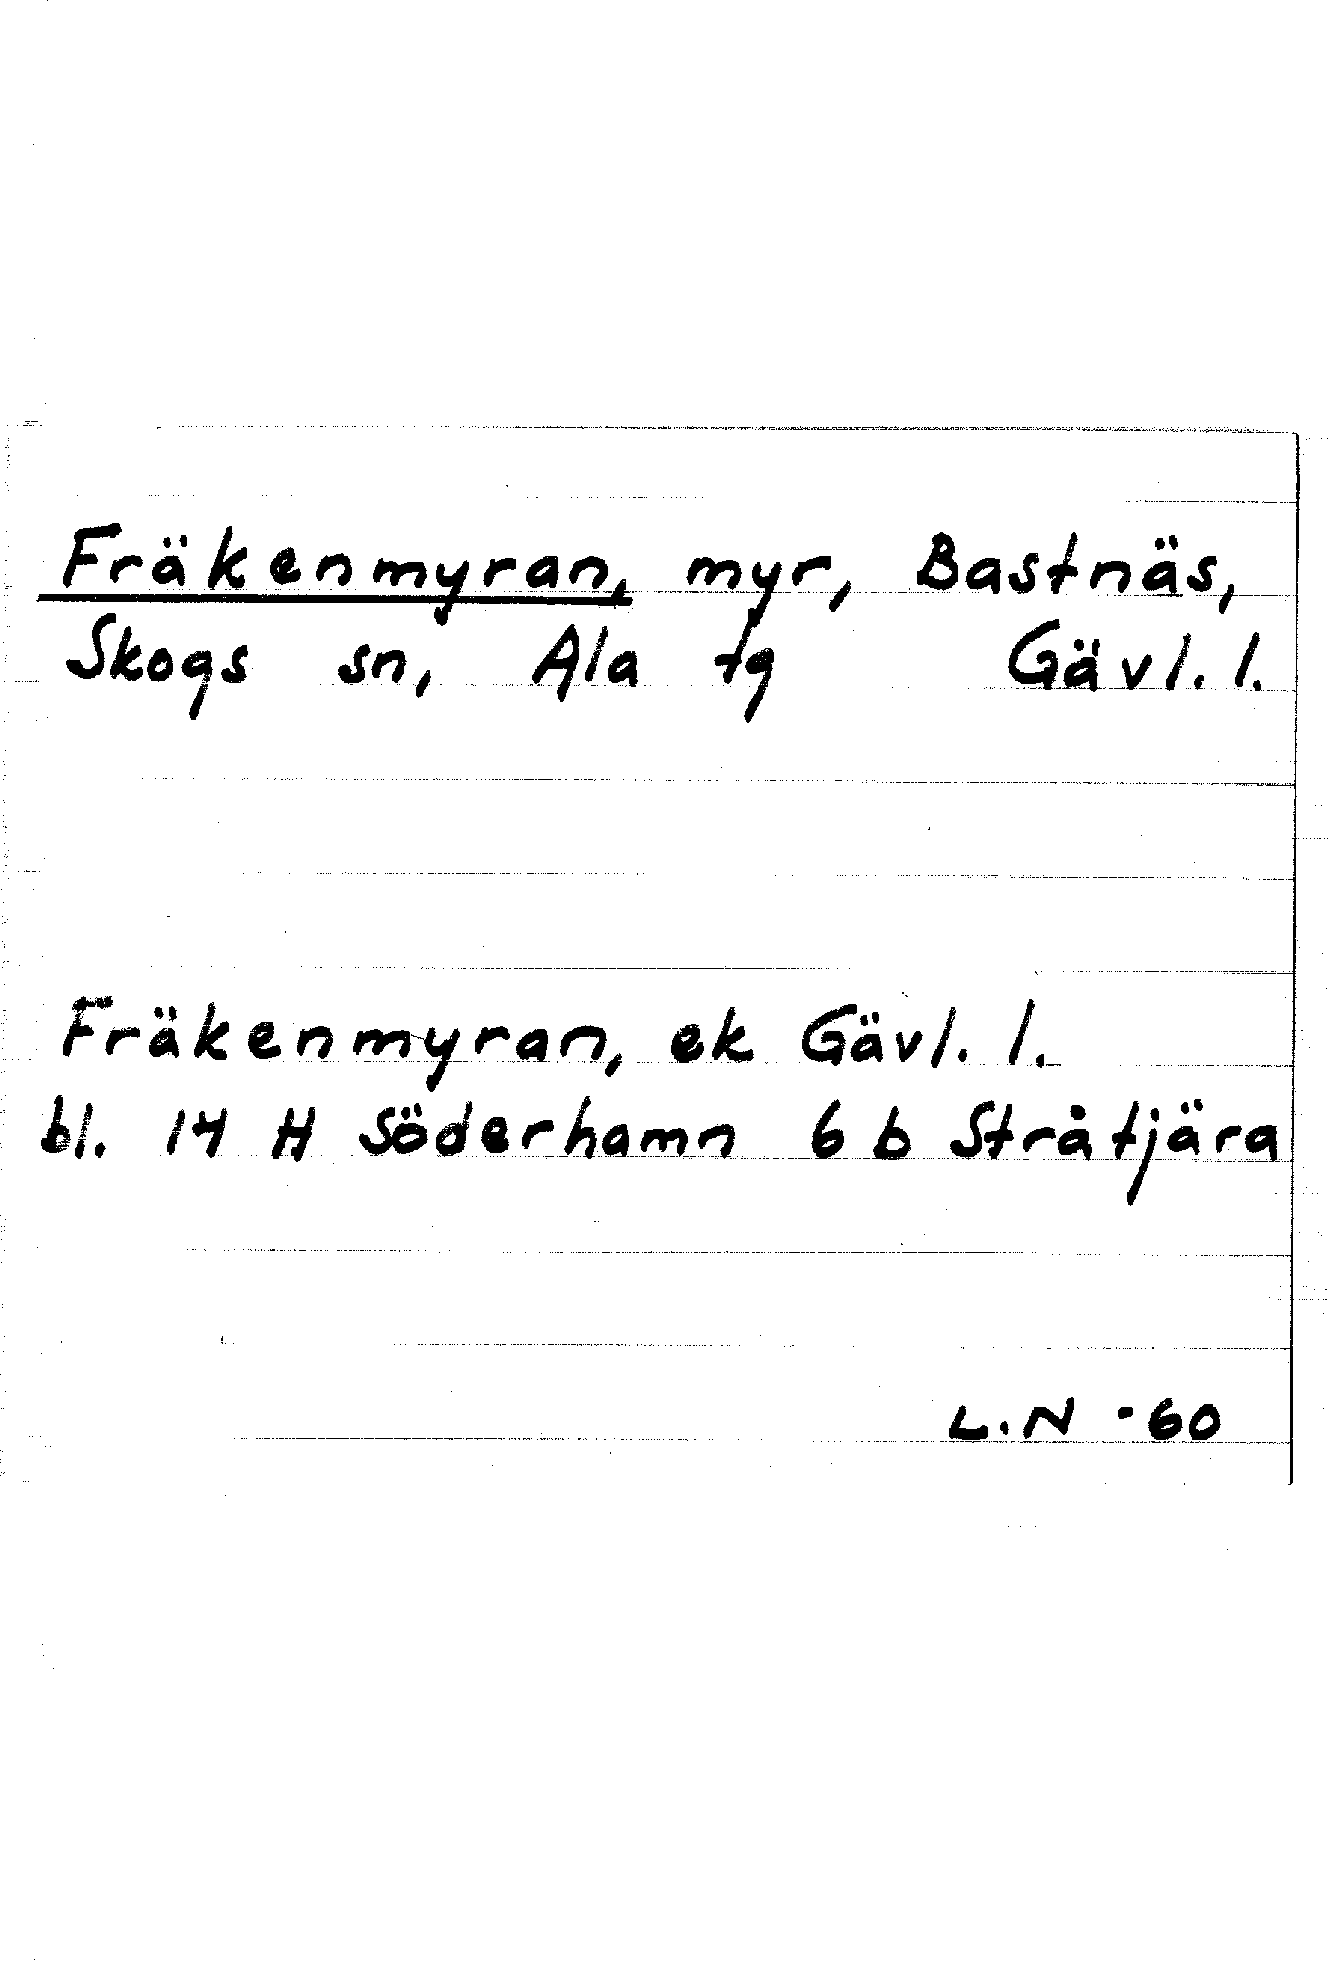 Fräkenmyran, myr, Bastnäs,
Skogs sn, Ala tg Gävl. l.
Fräkenmyran, ek Gävl. l.
bl. 14 H Söderhamn 6 b Stråtjära
L.N -60